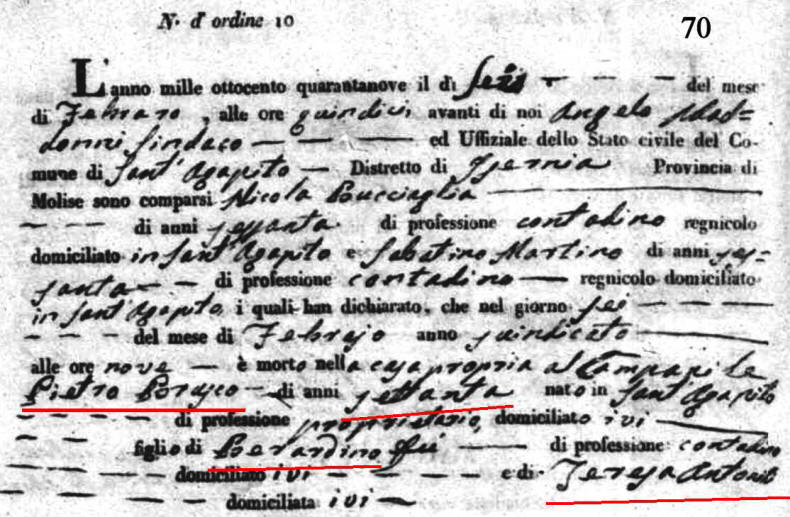 N. d' ordine 10
70
L'anno mille ottocento quarantanove il dì Seis del mese
di Febraro, alle ore quindici avanti di noi Angelo
Sindaco ed Uffiziale dello Stato civile del Co-
mune di Sant'Agapito Distretto di Isernia Provincia di
Molise sono comparsi Nicola Bucciaglia
di anni sessanta di professione contadino regnicolo
domiciliato in Sant'Agapito e Sabatino Martino di anni ses=
santa di professione contadino regnicolo domiciliato
in Sant'Agapito i quali han dichiarato, che nel giorno sei
del mese di Febrajo anno suindicato
alle ore nove è morto nella casa propria al Campanile
Pietro di anni settanta nato in Sant'Agapito
di professione proprietario, domiciliato ivi
figlio di Berardino fu di professione contadino
domiciliato ivi e di Teresa Antonil
domiciliata ivi